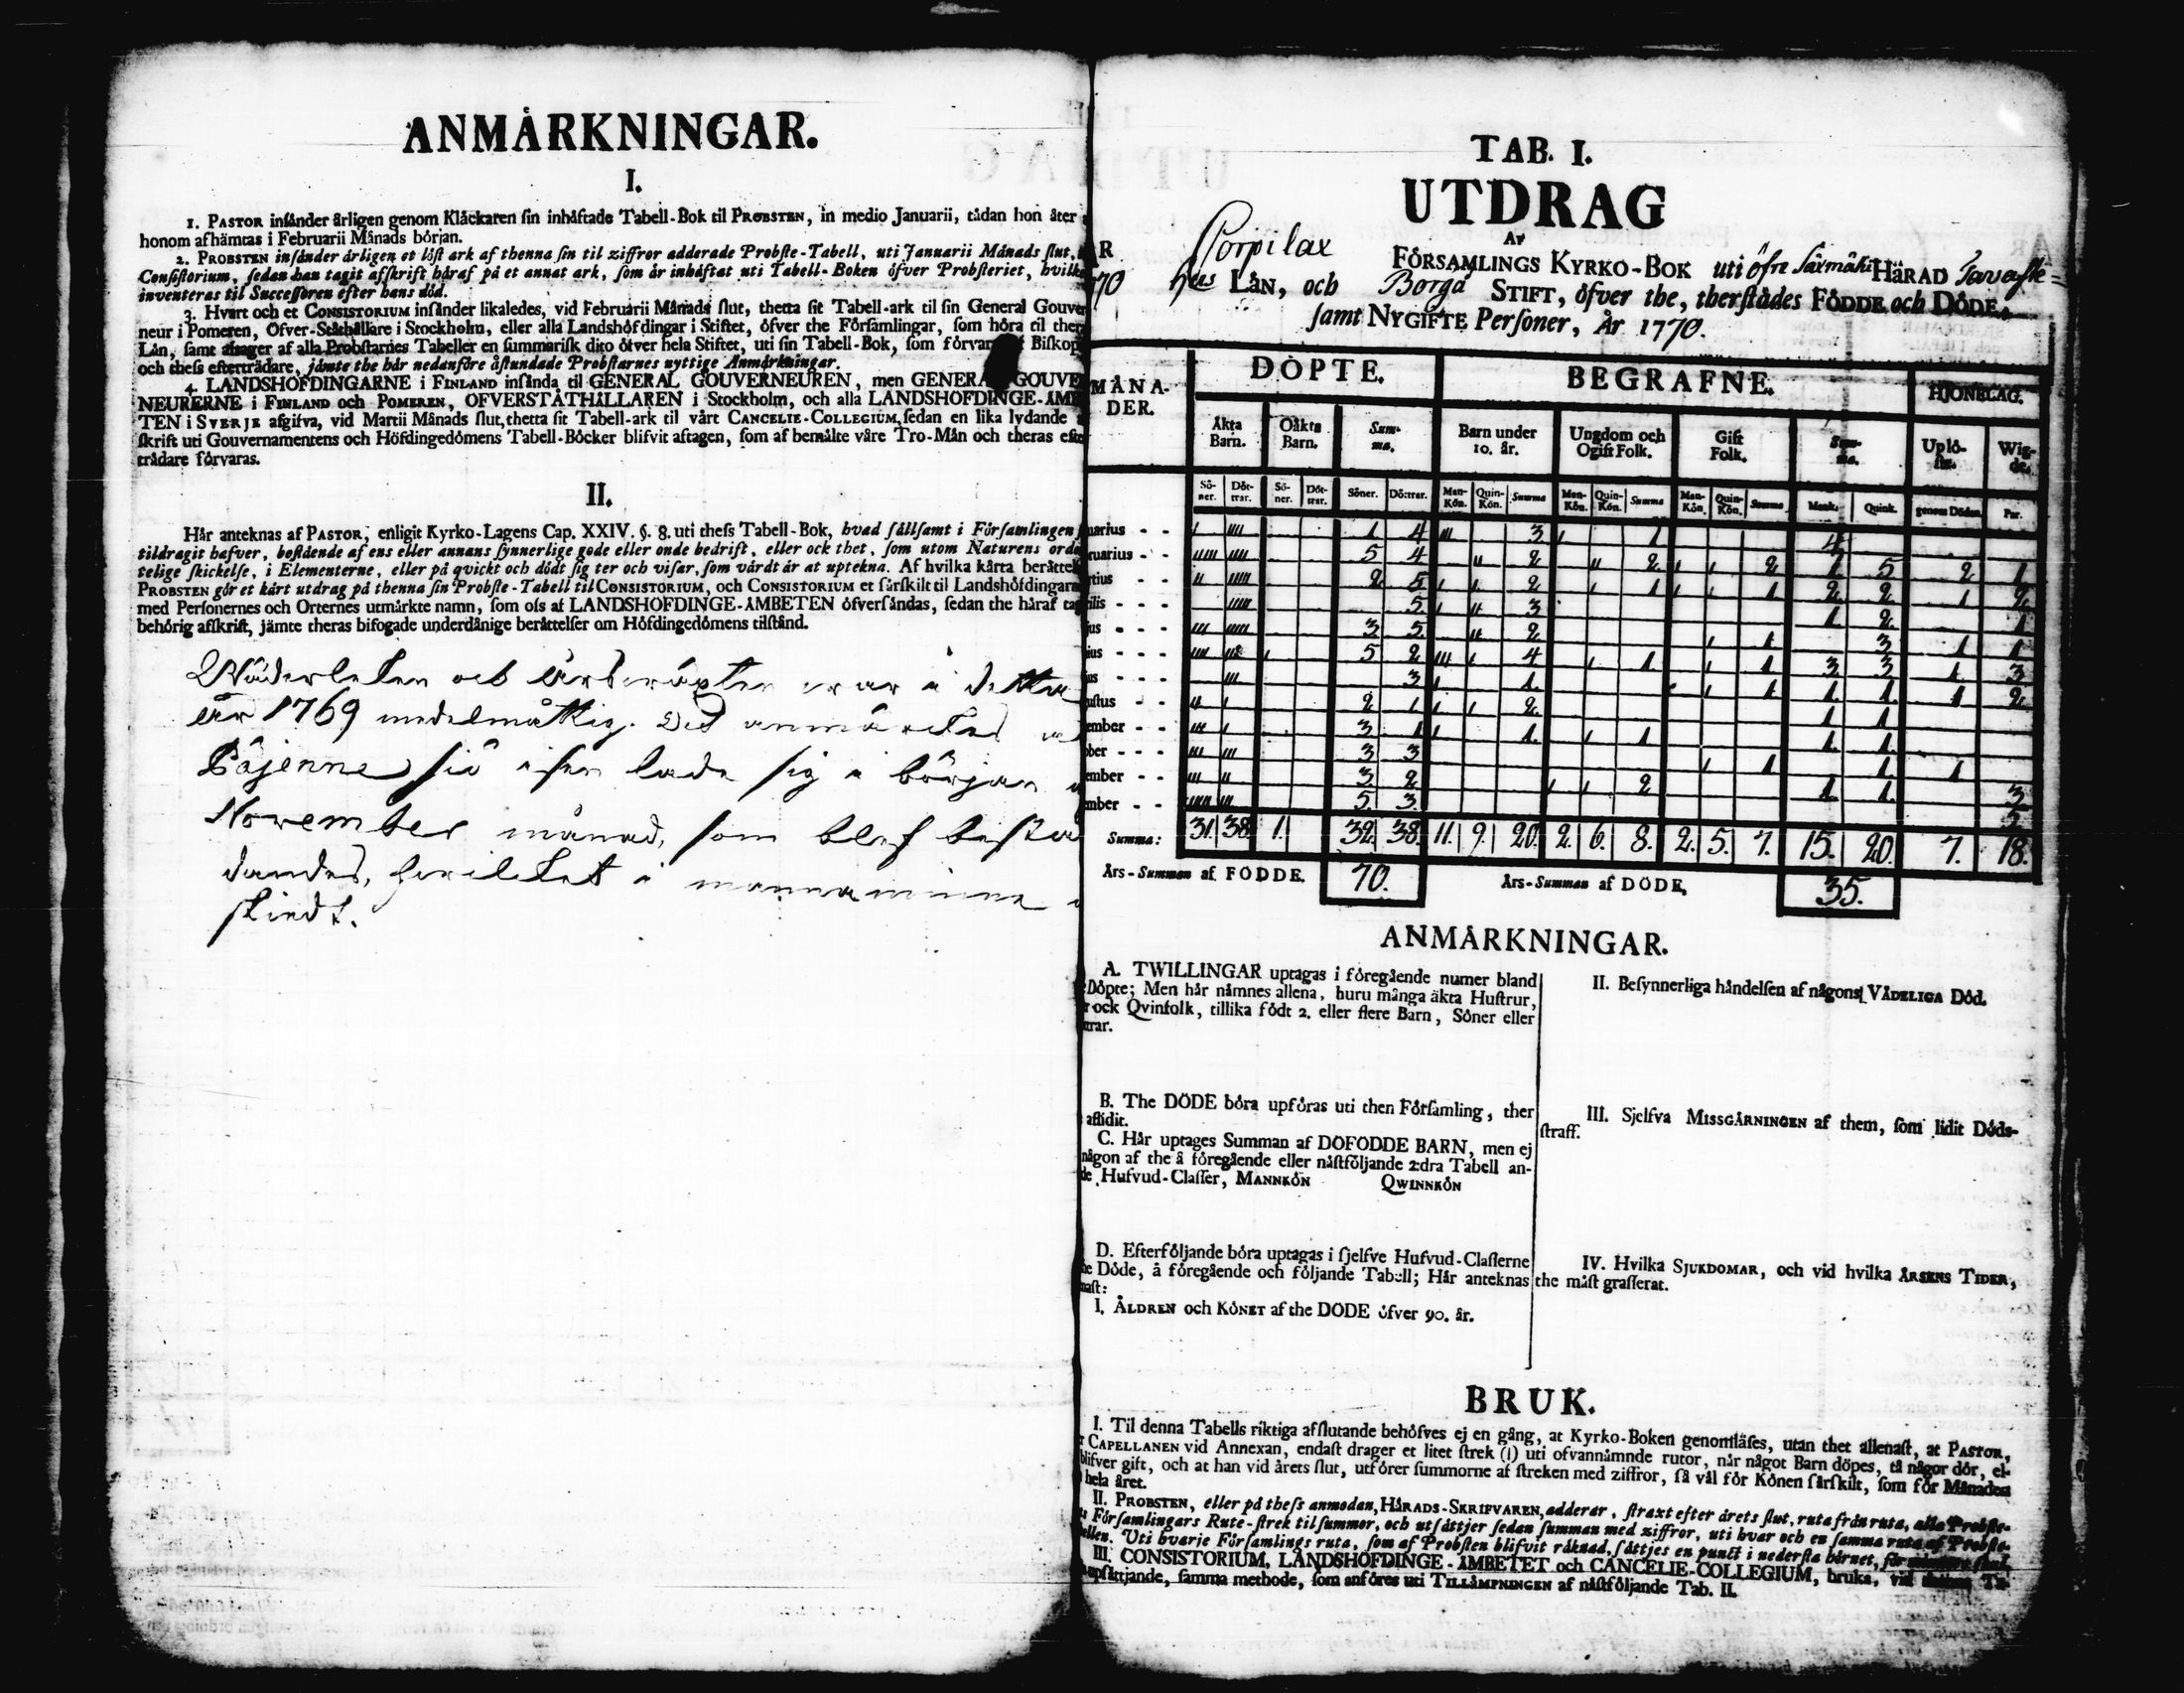 ANMÅRKNINGAR.
I.
1. PASTOR insånder årligen genom Klåckaren sin inhåftade Tabell-Bok til PROBSTEN, in medio Januarii, tådan hon åter
honom afhämtas i Februarii Månads bórjan.
2. PROBSTEN insånder årligen et lóst ark af thenna sin til ziffror adderade Probste-Tabell, uti Januarii Månads slut,
Consistorium, sedan han tagit afskrift håraf på et annat ark, som år inhåftat uti Tabell-Boken ófver Probsteriet, hvilke
inventeras til Successoren efter hans dód.
3. Hvart och et CONSISTORIUM insånder likaledes, vid Februarii Månads slut, thetta sit Tabell-ark til sin General Gouver
neur i Pomeren, Ófver-Ståthållare i Stockholm, eller alla Landshófdingar i Stiftet, ófver the Fórsamlingar, som hóra til
Lån, samt afsager af alla Probstarnes Tabeller en summarisk dito ófver hela Stiftet, uti sin Tabell-Bok, som fórvar Biskop
och thess eftertrådare, jåmte the hår nedanfóre åstundade Probstarnes nyttige Anmårkningar.
4. LANDSHÓFDINGARNE i FINLAND insånda til GENERAL GOUVERNEUREN, men GENERA GOUVE
NEURERNE i FINLAND och POMEREN, OFVERSTÅTHÅLLAREN i Stockholm, och alla LANDSHÓFDINGE-ÅMB
TEN i SVERJE afgifva, vid Martii Månads slut, thetta sit Tabell-ark til vårt CANCELIE-COLLEGIUM, sedan en lika lydande
skrift uti Gouvernamentens och Hófdingedómens Tabell-Bócker blifvit aftagen, som af bemålte våre Tro-Mån och theras efte
trådare fórvaras.
II.
Hår anteknas af PASTOR, enligit Kyrko-Lagens Cap. XXIV. §. 8. uti thess Tabell-Bok, hvad sållsamt i Fórsamlingen
tildragit hafver, bestående af ens eller annans synnerlige gode eller onde bedrift, eller ock thet, som utom Naturens orde
telige skickelse, i Elementerne, eller på qvickt och dódt sig ter och visar, som vårdt år at uptekna. Af hvilka kårta beråttel
PROBSTEN gór et kårt utdrag på thenna sin Probste-Tabell til CONSISTORIUM, och CONSISTORIUM et sårskilt til Landshófdingarn
med Personernes och Orternes utmårkte namn, som oss af LANDSHÓFDINGE-ÅMBETEN ófversåndas, sedan the håraf ta
behórig afskrift, jämte theras bifogade underdånige beråttelser om Hófdingedómens tilstånd.
Wäderleken och årswäxten war i detta
år 1769 medelmåttig. Det anmärckes
Päjenne siö isen lade sig i början
November månad, som blef bestå
dandes, hwilcket i mannaminne
skiedt.
TAB. I.
UTDRAG
AF
Korpilax FÓRSAMLINGS KYRKO-BOK uti öfre Säxmäki HÄRAD Tavaste=
hus LÅN, och Borgå STIFT, ófver the, therstådes FÓDDE och DÓDE,
samt NYGIFTE Personer, År 1770.
R
70
MÅNA-DER. DÓPTE. BEGRAFNE. HJONELAG.
Åkta Barn. Oåkta Barn. Sum-ma. Barn under 10. år. Ungdom och Ogift Folk. Gift Folk. Sum-ma. Upló-ste. Wig-de.
Só-ner. Dót-trar. Só-ner. Dót-trar. Sóner. Dóttrar. Man-Kón. Quin-Kón. Summa Man-Kón. Quin-Kón. Summa Man-Kón. Quin-Kón. Summa Mank. Quink. genom Dóden. Par.
nuarius - - 1 4 3 1 4
ruarius - - 5 4 2 2 2 1 5 2 1
rtius - - 2 5 2 1 1 2 2 1 2
ilis - - - 5 3 1 2 1
jus - - - 3 5 2 1 3 1 1
ius - - - 5 2 4 1 1 3 3 1 3
us - - - 3 1 1 1 1 1 2
ustus - - 2 1 2 1 1
ember - - 3 1 1 1 1 1
ber - - - 3 3 1 1 1
ember - - 3 2 2 1 1 3
mber - - 5 3 5
Summa: 31. 38. 1. 32. 38. 11. 9. 20. 2. 6. 8. 2. 5. 7. 15. 20. 7. 18.
Års-Summan af FÓDDE. 70. Års-Summan af DÓDE. 35.
ANMÅRKNINGAR.
A. TWILLINGAR uptagas i fóregående numer bland
Dópte; Men hår nåmnes allena, huru många äkta Hustrur,
ock Qvinfolk, tillika fódt 2. eller flere Barn, Sóner eller
trar.
B. The DÓDE bóra upfóras uti then Fórsamling, ther
aflidit.
C. Hår uptages Summan af DÓFÓDDE BARN, men ej
någon af the å fóregående eller nåstfóljande 2:dra Tabell an-
de Hufvud-Classer, MANNKÓN QWINNKÓN
D. Efterfóljande bóra uptagas i sjelfve Hufvud-Classerne
Dóde, å fóregående och fóljande Tabell; Hår anteknas
nast:
I. ÅLDREN och KÓNET af the DÓDE ófver 90. år.
II. Besynnerliga håndelsen af någons VÅDELIGA Dód.
III. Sjelfva MISSGÅRNINGEN af them, som lidit Dóds-
straff.
IV. Hvilka SJUKDOMAR, och vid hvilka ÅRSENS TIDER,
the måst grasserat.
BRUK.
I. Til denna Tabells riktiga afslutande behófves ej en gång, at Kyrko-Boken genomlåses, utan thet allenast, at PASTOR,
CAPELLANEN vid Annexan, endast drager et litet strek (I) uti ofvannåmnde rutor, når något Barn dópes, tå någor dór, el-
blifver gift, och at han vid årets slut, utfórer summorne af streken med ziffror, så vål fór Kónen sårskilt, som fór Månaden
hela året.
II. PROBSTEN, eller på thess anmodan, HÅRADS-SKRIFVAREN, adderar, straxt efter årets slut, ruta från ruta, alla Probste-
Fórsamlingars Rute-strek til summor, och utsåttjer sedan summan med ziffror, uti hvar och en samma ruta af Probste-
ellen. Uti hvarje Fórsamlings ruta, som af Probsten blifvit råknad, såttjes en punct i nedersta hórnet,
III. CONSISTORIUM, LANDSHÓFDINGE-ÅMBETET och CANCELIE-COLLEGIUM, bruka, vid
upsåttjande, samma methode, som anfóres uti TILLÅMPNINGEN af nåstfóljande Tab. II.